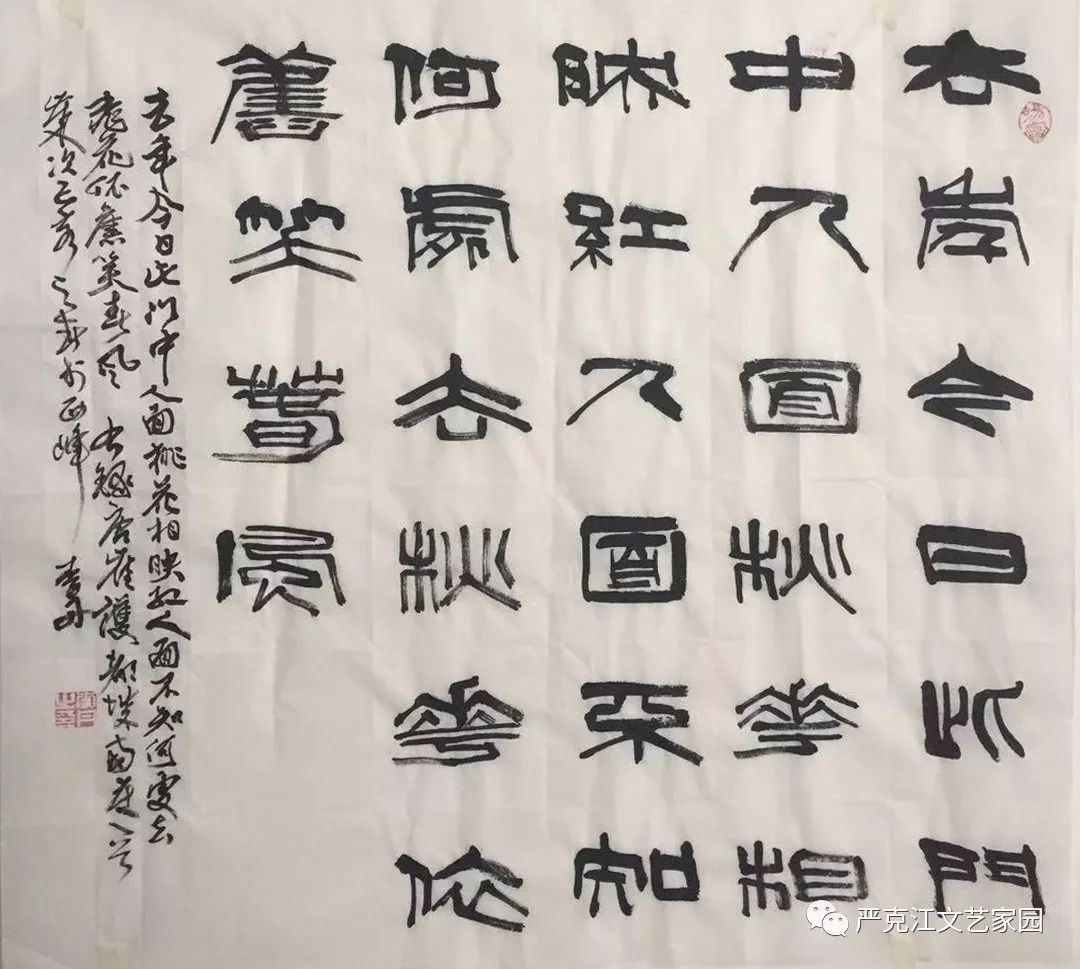 去年今日此門
中人面桃花相
映紅人面不知
何處去桃花依
舊笑春風
去年今日此门中人面桃花相映红人面不知何處去
桃花依舊笑春风 书録唐崔護都城南莊
歲次己亥之春於
严克江文艺家园